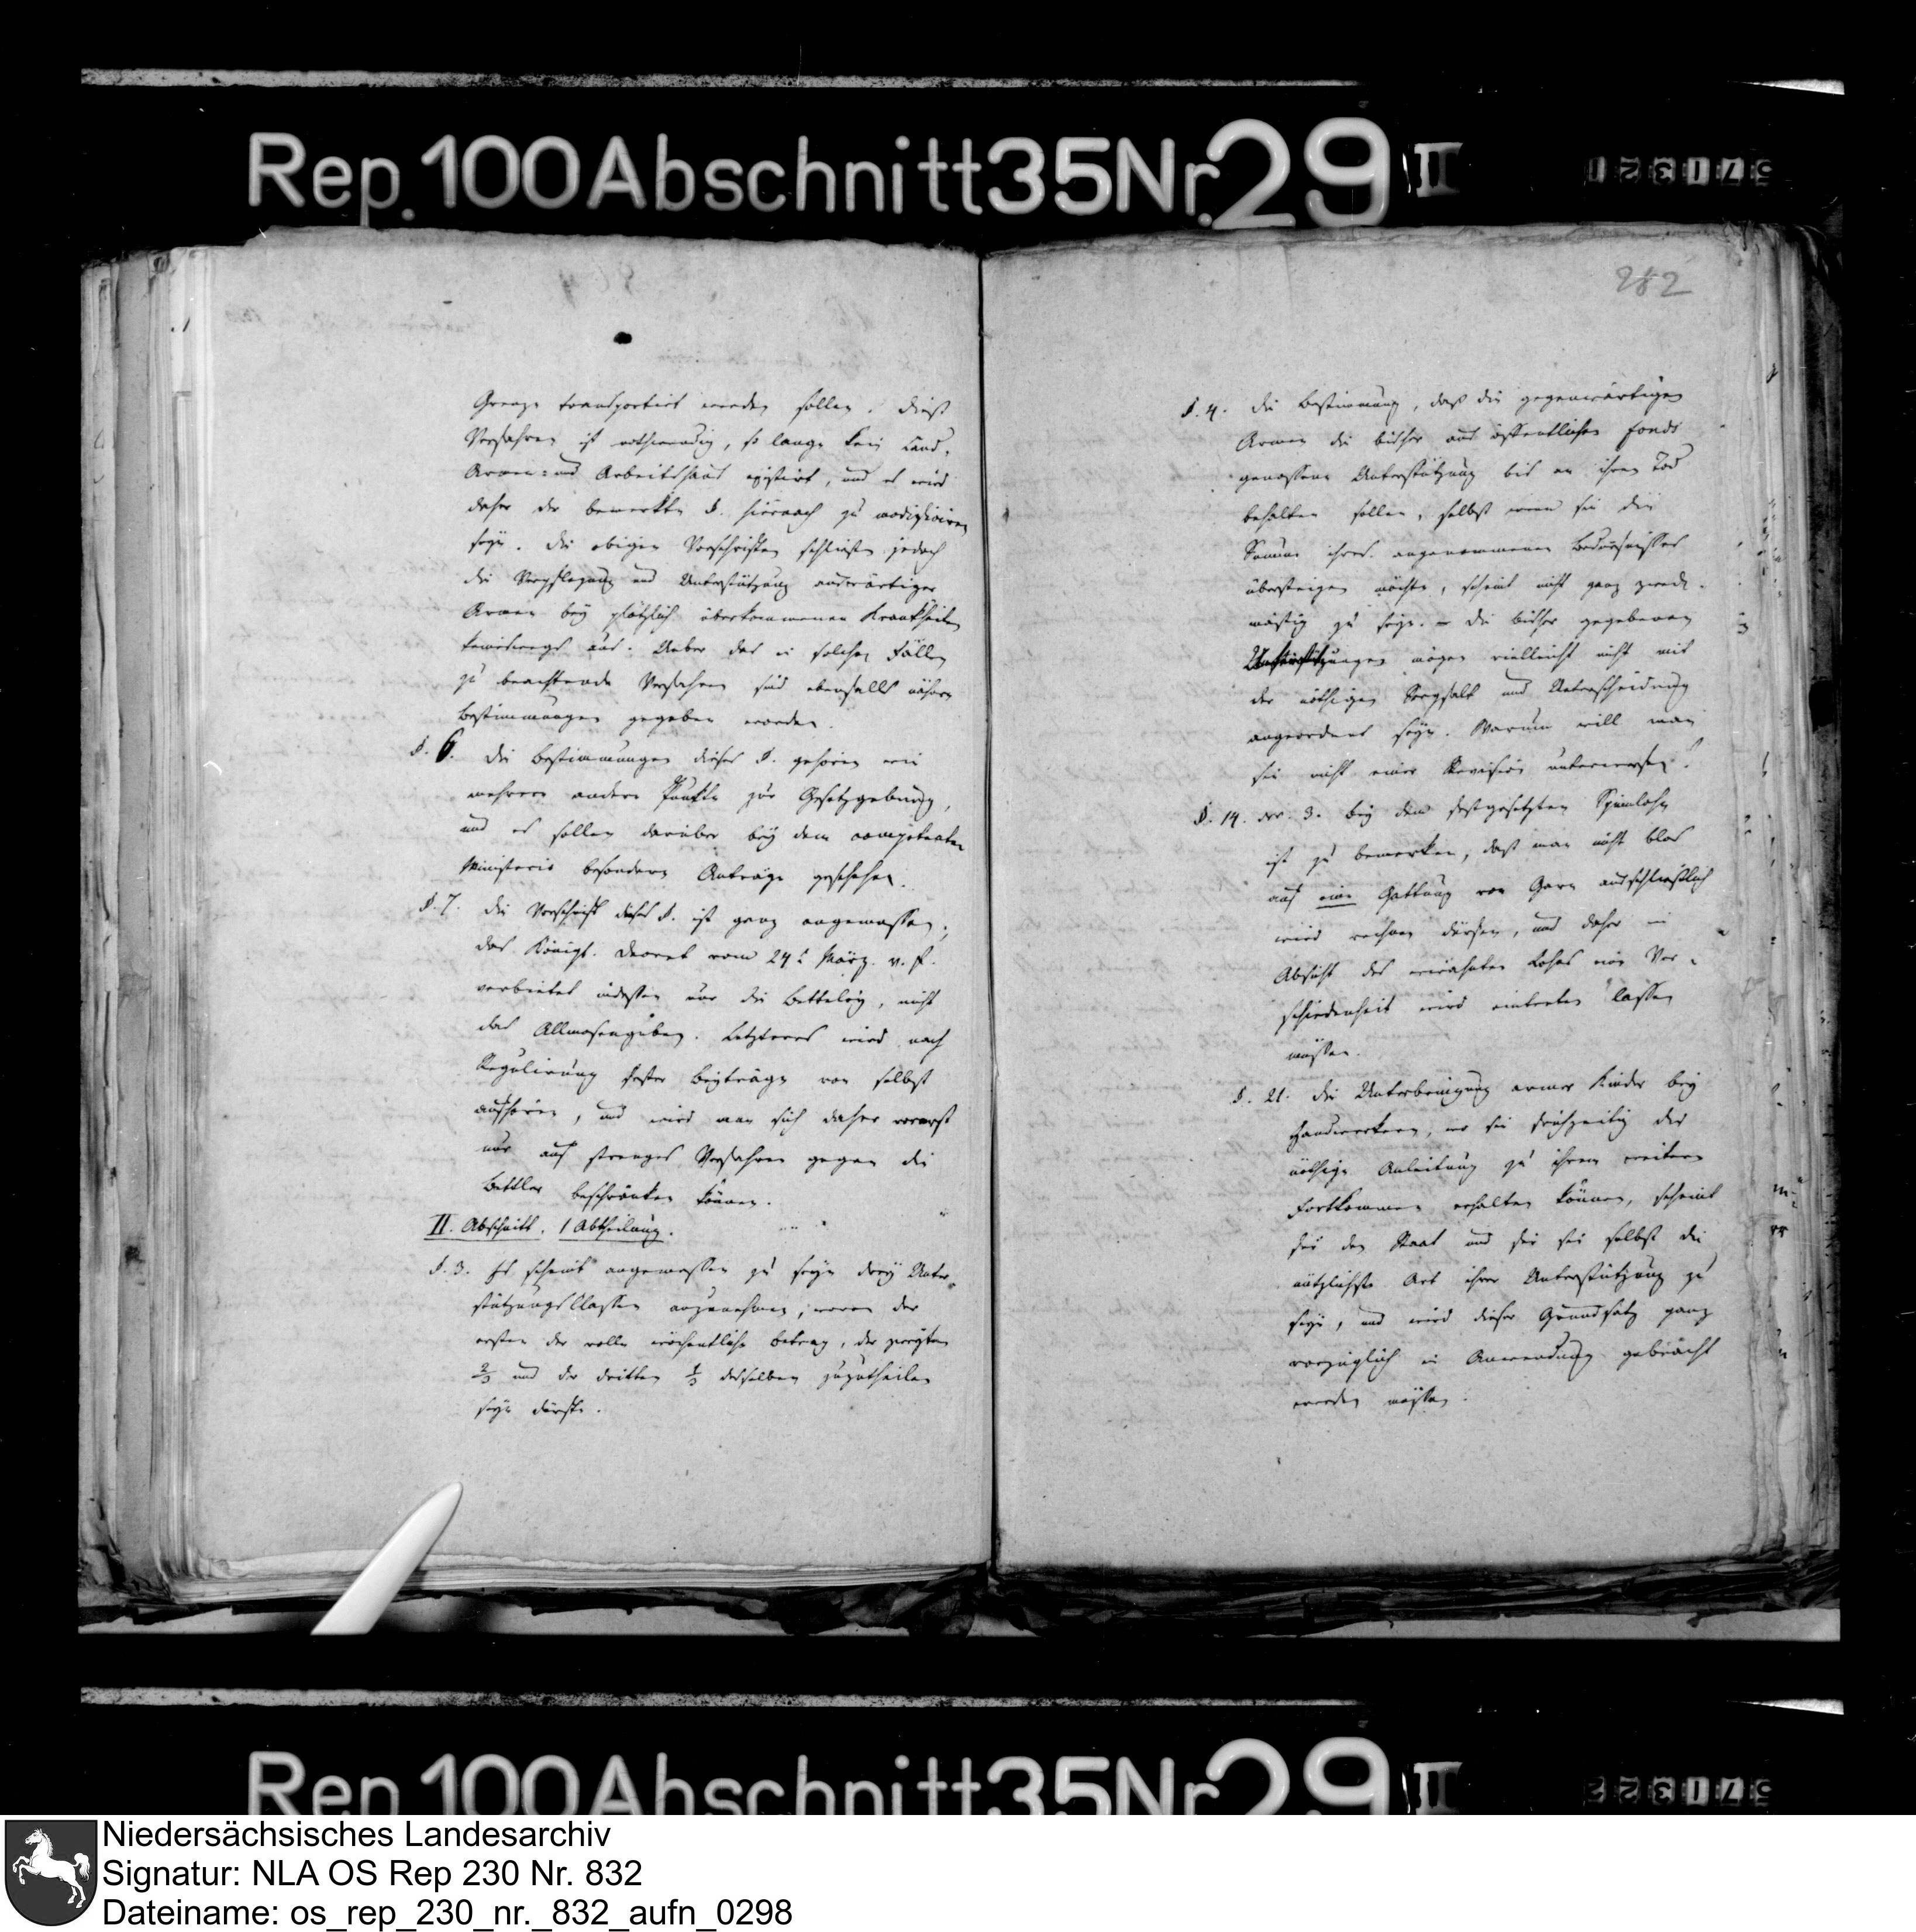 Rep. 100 Abschnitt 35 Nr. 29 II
571321
Grenze transportirt werden sollen. Dieß
Verfahren ist nothwendig, so lange kein Land-
Armen- und Arbeitshaus existirt, und es wird
daher der bemerkte §. hiernach zu modificiren
seyn. Die obigen Vorschriften schließen jedoch
die Verpflegung und Unterstützung auswärtiger
Armen bey plötzlich überkommenen Krankheiten
keineswegs aus. Ueber das in solchen Fällen
zu beachtende Verfahren sind ebenfalls nähere
Bestimmungen gegeben worden.
§. 6. Die Bestimmungen dieses §. gehören wie
mehrere andere Punkte zur Gesetzgebung,
und es sollen darüber bey dem competenten
Ministerio besondere Anträge geschehen.
§. 7. Die Vorschrift dieses §. ist ganz angemessen;
das Königl. Decret vom 24t März v. J.
verbietet indessen nur die Betteley, nicht
das Allmosengeben. Letzteres wird nach
Regulirung fester Beyträge von selbst
aufhören, und wird man sich daher vorerst
nur auf strenges Verfahren gegen die
Bettler beschränken können.
II. Abschnitt. 1 Abtheilung.
§. 3. Es scheint angemessen zu seyn drey Unter-
stützungsClassen anzunehmen, wovon der
ersten der volle wöchentliche Betrag, der zweyten
2/3 und der dritten 1/3 desselben zuzutheilen
seyn dürfte.
282
§. 4. Die Bestimmung, daß die gegenwärtigen
Armen die bisher aus öffentlichen Fonds
genossene Unterstützung bis an ihren Tod
behalten sollen, selbst wenn sie die
Summe ihres angenommenen Bedürfnisses
übersteigen möchte, scheint nicht ganz zweck-
mäßig zu seyn. – Die bisher gegebenen
Unterstützungen mögen vielleicht nicht mit
der nöthigen Sorgfalt und Unterscheidung
angeordnet seyn. Warum will man
sie nicht einer Revision unterwerfen?
§. 14. nr. 3. Bey dem festgesetzten Spinnlohn
ist zu bemerken, daß man nicht blos
auf eine Gattung von Garn ausschließlich
wird rechnen dürfen, und daher in
Absicht des erwähnten Lohns eine Ver-
schiedenheit wird eintreten lassen
müssen.
§. 21. Die Unterbringung armer Kinder bey
Handwerkern, wo sie frühzeitig die
nöthige Anleitung zu ihrem weitern
Fortkommen erhalten können, scheint
für den Staat und für sie selbst die
nützlichste Art ihrer Unterstützung zu
seyn, und wird dieser Grundsatz ganz
vorzüglich in Anwendung gebracht
werden müssen.
Rep. 100 Abschnitt 35 Nr. 29 II
571322
Niedersächsisches Landesarchiv
Signatur: NLA OS Rep 230 Nr. 832
Dateiname: os_rep_230_nr._832_aufn_0298